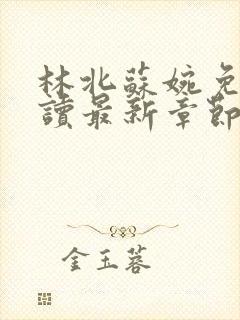 林北蘇婉免
讀最新章節
金玉蓉